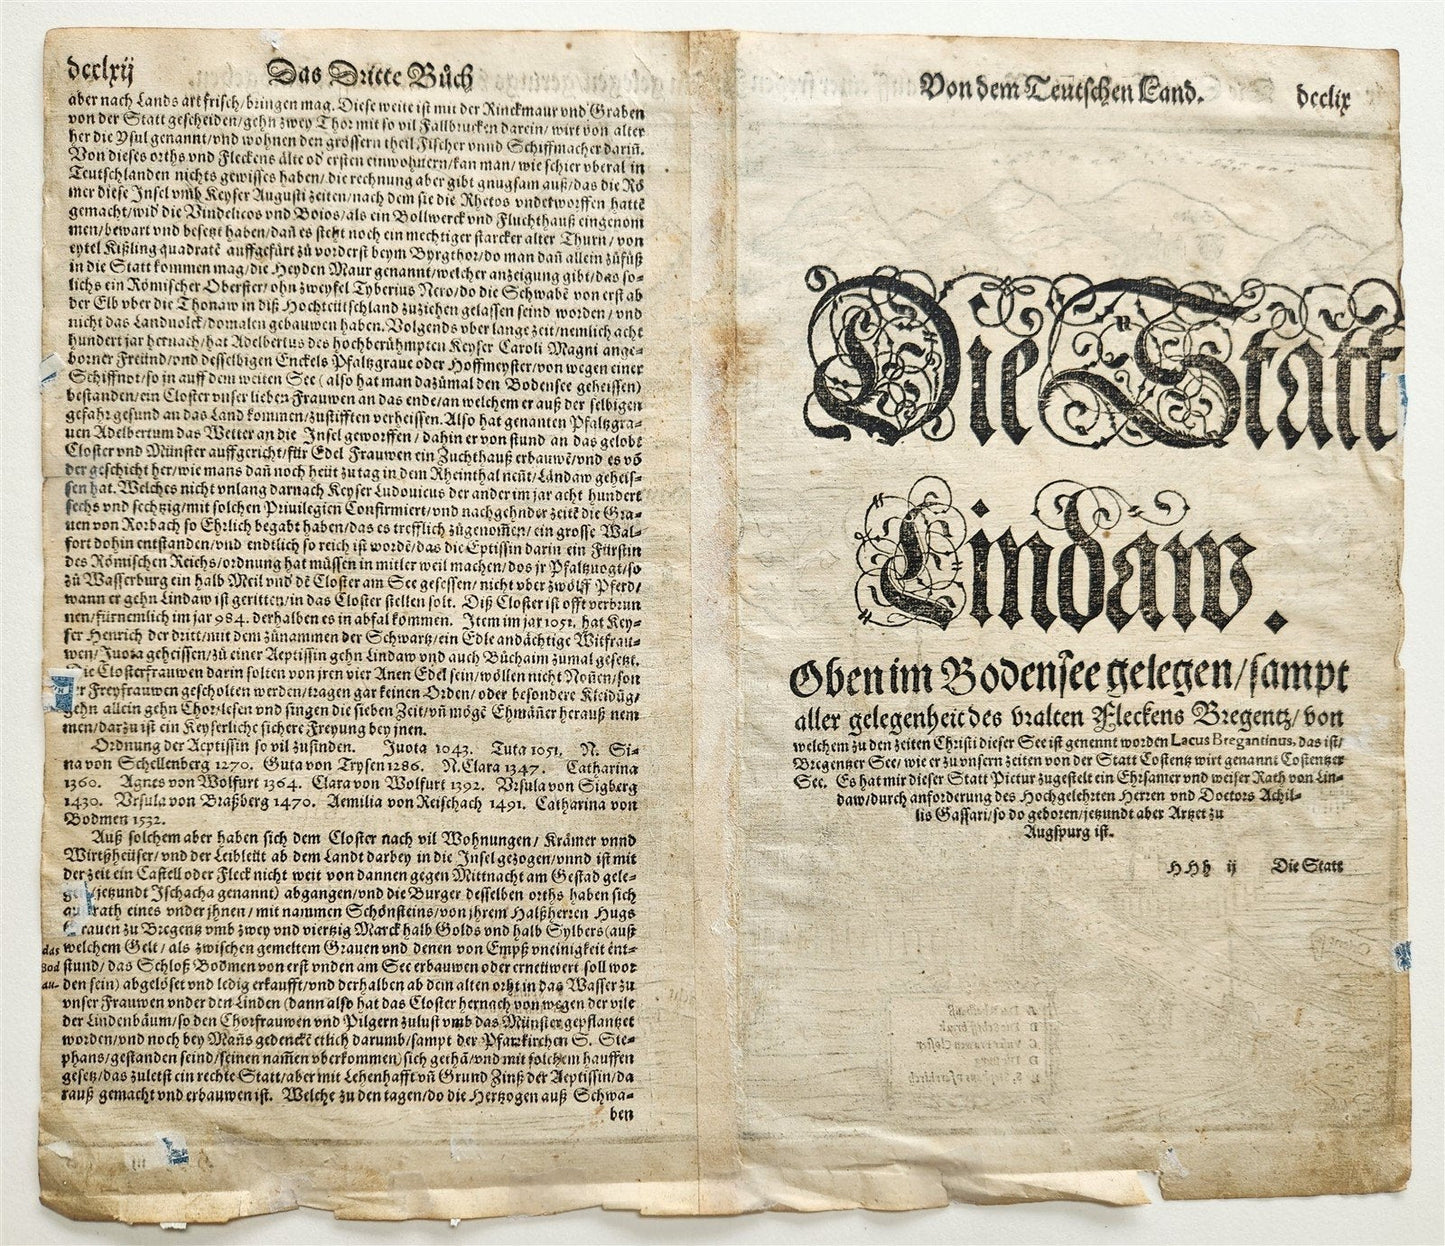 dcclxij Das Dritte Bůch
aber nach Lands art frisch/bringen mag. Diese weite ist mit der Rinckmaur vnd Graben
von der Statt gescheiden/gehn zwey Thor mit so vil Fallbrucken darein/ wirt von alter
her die Ysul genannt/vnd wohnen den grössern theil Fischer vnnd Schiffmacher darin̄.
Von dieses orths vnd Fleckens älte od' ersten einwohnern/kan man/ wie schier vberal in
Teutschlanden nichts gewisses haben/ die rechnung aber gibt gnugsam auß/das die Rö
mer diese Insel vmb Keyser Augusti zeiten/nach dem sie die Rhetos vnderworffen hattē
gemacht/wid' die Vindelicos vnd Boios/als ein Bollwerck vnd Fluchthauß eingenom
men/bewart vnd besetzt haben/dañ es steht noch ein mechtiger starcker alter Thurn/ von
eytel Kißling quadratē auffgefürt zů vorderst beym Byrgthor/do man dañ allein zůfůß
in die Statt kommen mag/die Heyden Maur genannt/welcher anzeigung gibt/das so-
lichs ein Römischer Oberster/ ohn zweyfel Tyberius Nero/do die Schwabē von erst ab
der Elb vber die Thonaw in diß Hochteütschland zuziehen gelassen seind worden/ vnd
nicht das Landuolck/domalen gebauwen haben. Volgends vber lange zeit/nemlich acht
hundert jar hernach/hat Adelbertus des hochberühmpten Keyser Caroli Magni ange-
borner Freünd/vnd desselbigen Enckels Pfaltzgraue oder Hoffmeyster/von wegen einer
Schiffnot/so jn auff dem weiten See (also hat man dazůmal den Bodensee geheissen)
bestanden/ein Closter vnser lieben Frauwen an das ende/an welchem er auß der selbigen
gefahr gesund an das Land kommen/zůstifften verheissen. Also hat genanten Pfaltzgra-
uen Adelbertum das Wetter an die Insel geworffen/ dahin er von stund an das gelobt
Closter vnd Münster auffgericht/für Edel Frauwen ein Zuchthauß erbauwē/vnd es vō
der geschicht her/wie mans dañ noch heüt zu tag in dem Rheinthal neñt/Ländaw geheis-
sen hat. Welches nicht vnlang darnach Keyser Ludouicus der ander im jar acht hundert
sechs vnd sechtzig/mit solchen Priuilegien Confirmiert/vnd nachgehnder zeitē die Gra-
uen von Rorbach so Ehrlich begabt haben/das es trefflich zůgenom̄en/ ein grosse Wal-
fort dohin entstanden/vnd endtlich so reich ist wordē/das die Eptissin darin ein Fürstin
des Römischen Reichs/ordnung hat müssen in mitler weil machen/das jr Pfaltzuogt/so
zů Wasserburg ein halb Meil vnd' dē Closter am See gesessen/ nicht vber zwölff Pferd/
wann er gehn Lindaw ist geritten/in das Closter stellen solt. Diß Closter ist offt verbrun
nen/fürnemlich im jar 984. derhalben es in abfal kommen. Item im jar 1051. hat Key-
ser Henrich der dritt/mit dem zůnammen der Schwartz/ein Edle andächtige Witfrau-
wen/Juota geheissen/zů einer Aeptissin gehn Lindaw vnd auch Bůchaim zumal gesetzt.
Die Closterfrauwen darin solten von jren vier Anen Edel sein/wöllen nicht Noñen/son
Freyfrauwen gescholten werden/tragen gar keinen Orden/ oder besondere Kleidūg/
gehn allein gehn Chor/lesen vnd singen die sieben Zeit/vñ mögē Ehmāñer herauß nem
men/darzů ist ein Keyserliche sichere Freyung bey jnen.
Ordnung der Aeptissin so vil zufinden. Juota 1043. Tuta 1051. N. Si-
na von Schellenberg 1270. Guta von Trysen 1286. N. Clara 1347. Catharina
1360. Agnes von Wolfurt 1364. Clara von Wolfurt 1392. Vrsula von Sigberg
1430. Vrsula von Braßberg 1470. Aemilia von Reischach 1491. Catharina von
Bodmen 1532.
Auß solchem aber haben sich dem Closter nach vil Wohnungen/ Krämer vnnd
Wirtßheüser/vnd der Leibleüt ab dem Landt darbey in die Insel gezogen/vnnd ist mit
der zeit ein Castell oder Fleck nicht weit von dannen gegen Mittnacht am Gestad gele-
(jetzundt Ischacha genannt) abgangen/vnd die Burger desselben orths haben sich
rath eines vnder jhnen/ mit nammen Schönsteins/von jhrem Halßherren Hugs
Grauen zu Bregentz vmb zwey vnd viertzig Marck halb Golds vnd halb Sylbers (auß
das welchem Gelt/ als zwischen gemeltem Grauen vnd denen von Empß vneinigkeit ent-
Bod stund/ das Schloß Bodmen von erst vnden am See erbauwen oder erneüwert soll wor
au- den sein) abgelöset vnd ledig erkaufft/vnd derhalben ab dem alten orht in das Wasser zu
vnser Frauwen vnder den Linden (dann also hat das Closter hernach von wegen der vile
der Lindenbäum/so den Chorfrauwen vnd Pilgern zulust vmb das Münster gepflantzet
worden/vnd noch bey Mañs gedenckē etlich darumb/sampt der Pfarrkirchen S. Ste-
phans/gestanden seind/seinen nam̄en vberkommen) sich gethā/vnd mit solchem hauffen
gesetz/das zuletst ein rechte Statt/aber mit Lehenhafft vñ Grund Zinß der Aeptissin/da
rauß gemacht vnd erbauwen ist. Welche zu den tagen/do die Hertzogen auß Schwa-
ben
Von dem Teutschen Land. dcclix
Die Statt
Lindaw.
Oben im Bodensee gelegen/sampt
aller gelegenheit des vralten Fleckens Bregentz/ von
welchem zu den zeiten Christi dieser See ist genennt worden Lacus Bregantinus, das ist/
Bregentzer See/ wie er zu vnsern zeiten von der Statt Costentz wirt genannt Costentzer
See. Es hat mir dieser Statt Pictur zugestelt ein Ehrsamer vnd weiser Rath von Lin-
daw/durch anforderung des Hochgelehrten Herren vnd Doctors Achil-
lis Gassari/so do geboren/jetzundt aber Artzet zu
Augspurg ist.
HHh ij Die Statt